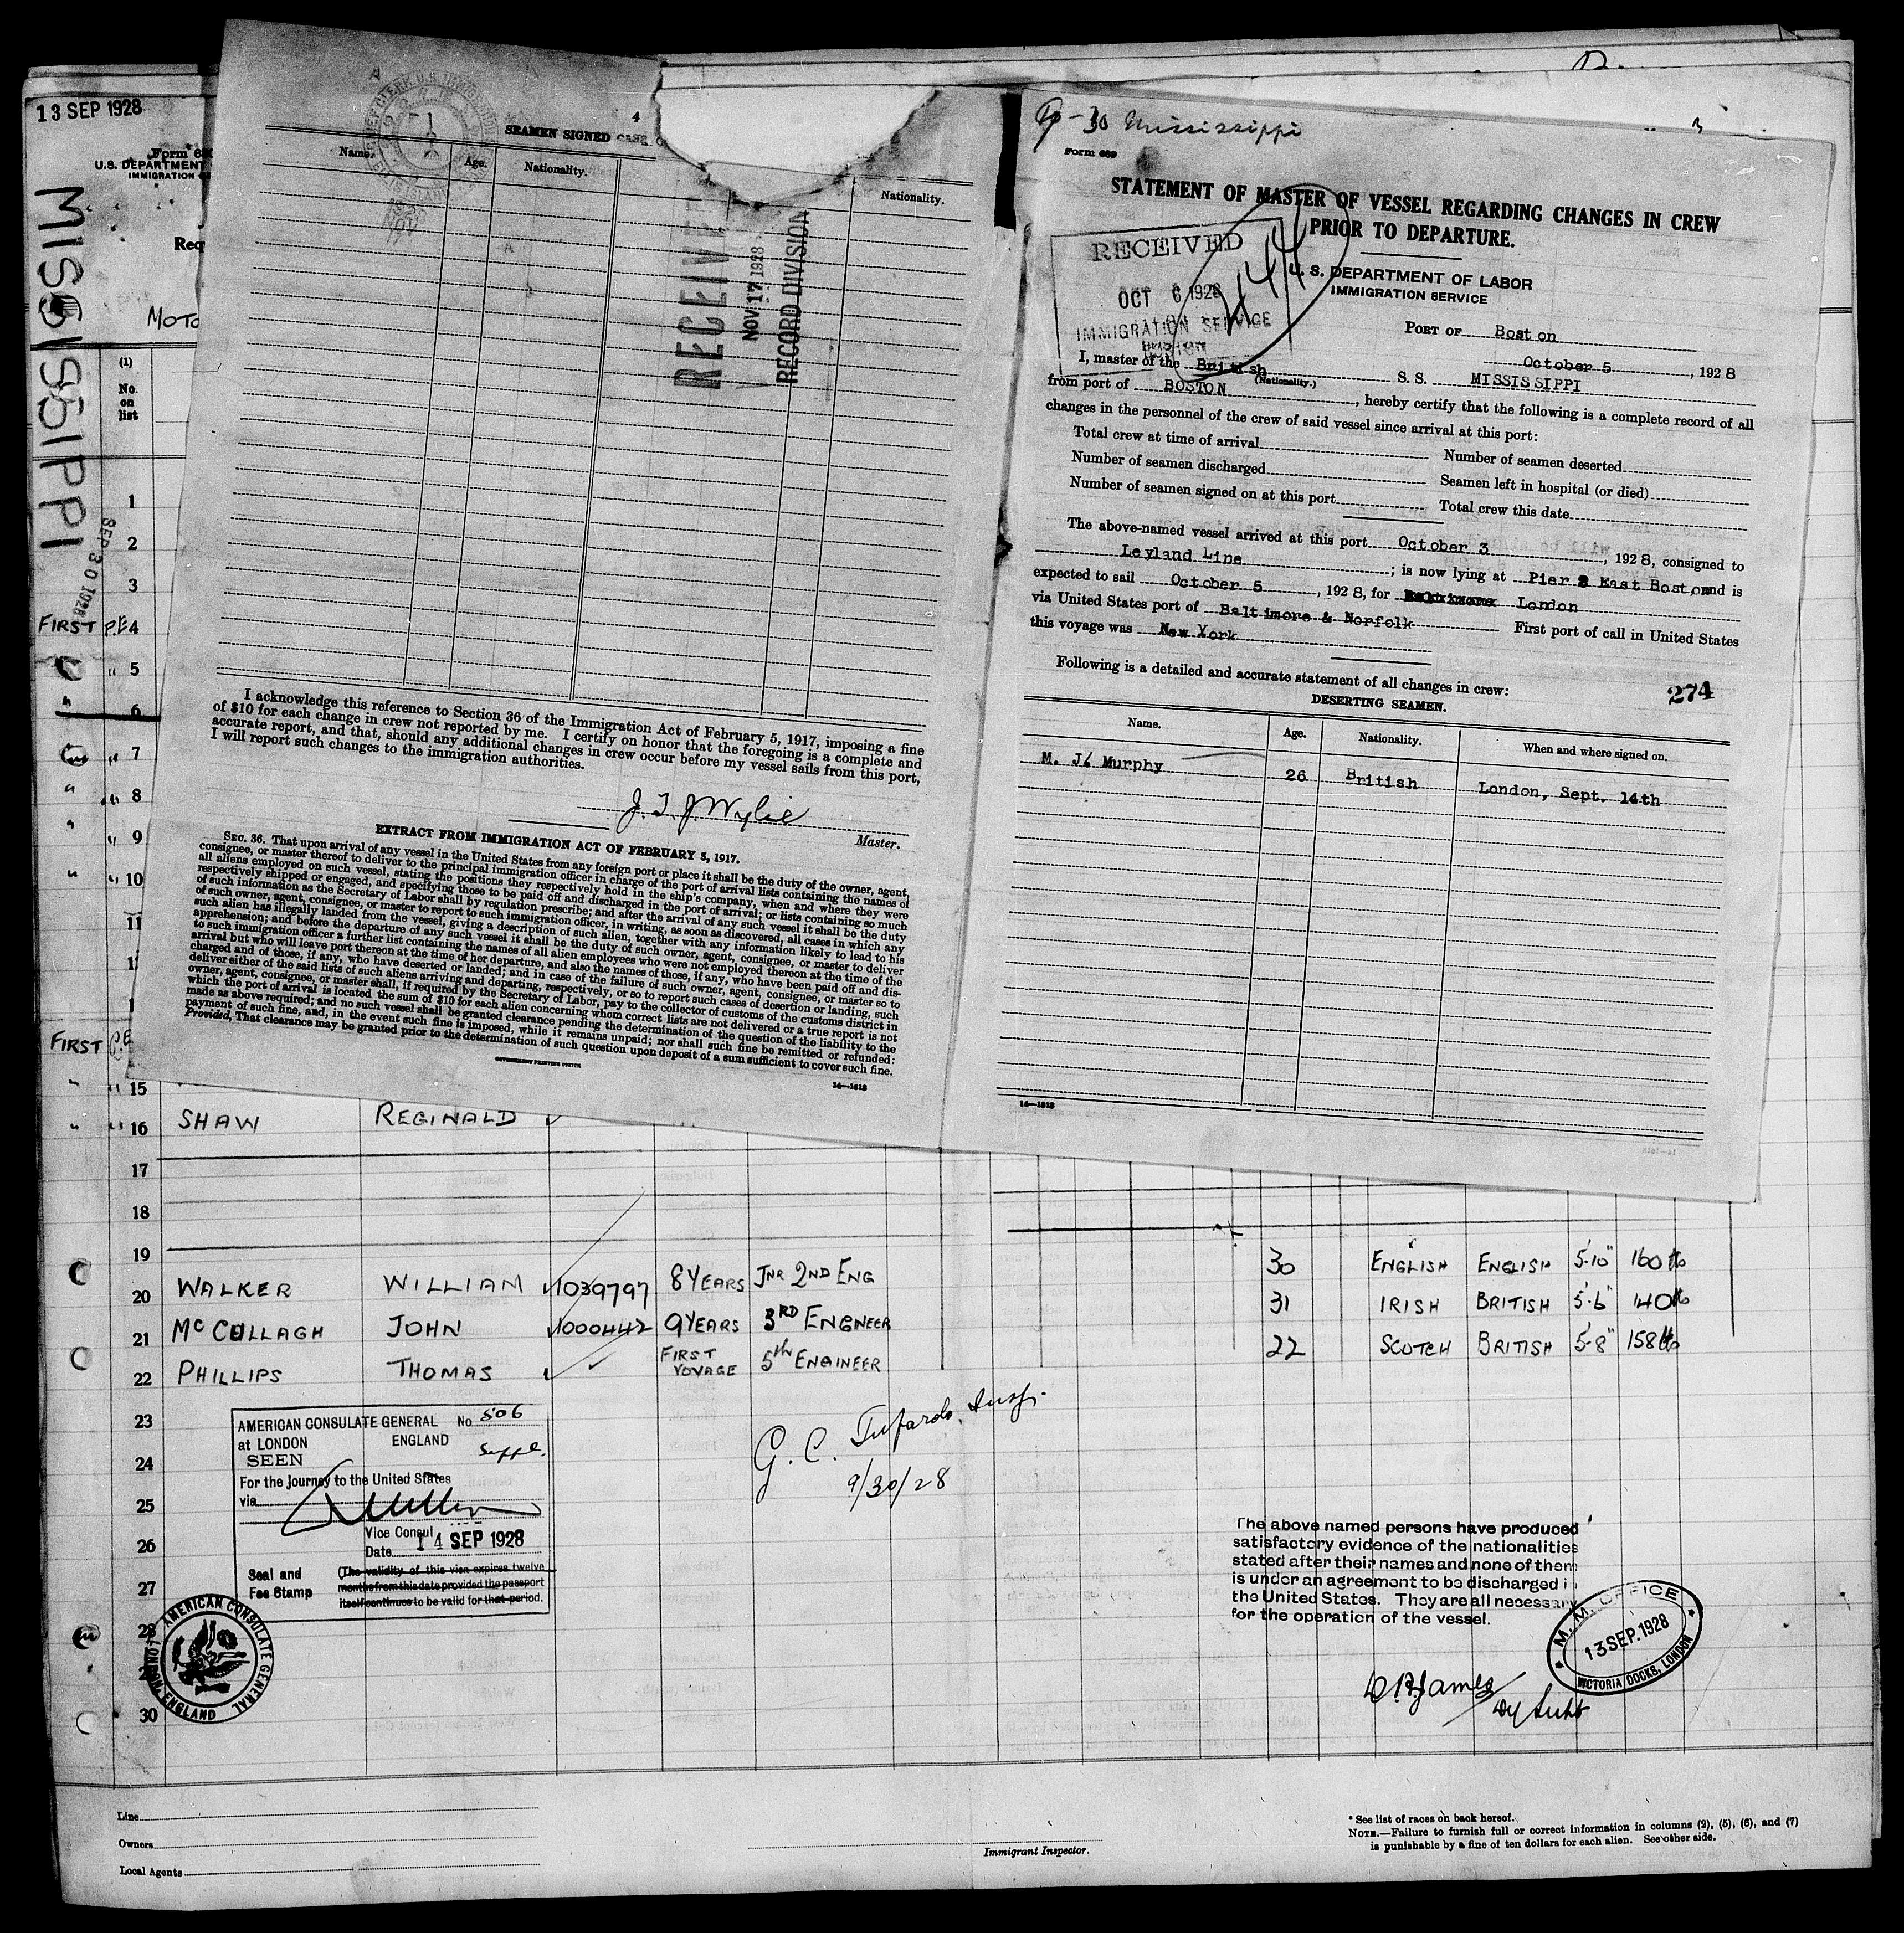 13 SEP 1928
Form 6
U.S. DEPARTMENT
IMMIGRATION
MISSISSIPPI
Req
MOTO
(1)
No.
on
list
1
2
SEP 30 1928
3
FIRST P.E 4
" 5
" " 6
" 7
" " 8
" " 9
" " 10
11
1
1
FIRST
" " 15
4
SEAMEN SIGNED
Name.
Age.
Nationality.
Nationality.
1928
NOV
17
RECEIVED
NOV 17 1928
RECORD DIVISION
I acknowledge this reference to Section 36 of the Immigration Act of February 5, 1917, imposing a fine
of $10 for each change in crew not reported by me. I certify on honor that the foregoing is a complete and
accurate report, and that, should any additional changes in crew occur before my vessel sails from this port,
I will report such changes to the immigration authorities.
J. T. J. Wylie
Master.
EXTRACT FROM IMMIGRATION ACT OF FEBRUARY 5, 1917.
SEC. 36. That upon arrival of any vessel in the United States from any foreign port or place it shall be the duty of the owner, agent,
consignee, or master thereof to deliver to the principal immigration officer in charge of the port of arrival lists containing the names of
all aliens employed on such vessel, stating the positions they respectively hold in the ship's company, when and where they were
respectively shipped or engaged, and specifying those to be paid off and discharged in the port of arrival; or lists containing so much
of such information as the Secretary of Labor shall by regulation prescribe; and after the arrival of any such vessel it shall be the duty
of such owner, agent, consignee, or master to report to such immigration officer, in writing, as soon as discovered, all cases in which any
such alien has illegally landed from the vessel, giving a description of such alien, together with any information likely to lead to his
apprehension; and before the departure of any such vessel it shall be the duty of such owner, agent, consignee, or master to deliver
to such immigration officer a further list containing the names of all alien employees who were not employed thereon at the time of the
arrival but who will leave port thereon at the time of her departure, and also the names of those, if any, who have been paid off and dis-
charged and of those, if any, who have deserted or landed; and in case of the failure of such owner, agent, consignee, or master so to
deliver either of the said lists of such aliens arriving and departing, respectively, or so to report such cases of desertion or landing, such
owner, agent, consignee, or master shall, if required by the Secretary of Labor, pay to the collector of customs of the customs district in
which the port of arrival is located the sum of $10 for each alien concerning whom correct lists are not delivered or a true report is not
made as above required; and no such vessel shall be granted clearance pending the determination of the question of the liability to the
payment of such fine, and, in the event such fine is imposed, while it remains unpaid; nor shall such fine be remitted or refunded:
Provided, That clearance may be granted prior to the determination of such question upon deposit of a sum sufficient to cover such fine.
GOVERNMENT PRINTING OFFICE
14—1613
- 30 Mississippi
Form 689
STATEMENT OF MASTER OF VESSEL REGARDING CHANGES IN CREW
PRIOR TO DEPARTURE.
U. S. DEPARTMENT OF LABOR
IMMIGRATION SERVICE
RECEIVED
OCT 6 1928
IMMIGRATION SERVICE
BOSTON
PORT OF Boston
October 5, 1928
I, master of the British S. S. MISSISSIPPI
(Nationality.)
from port of BOSTON, hereby certify that the following is a complete record of all
changes in the personnel of the crew of said vessel since arrival at this port:
Total crew at time of arrival Number of seamen deserted
Number of seamen discharged Seamen left in hospital (or died)
Number of seamen signed on at this port Total crew this date
The above-named vessel arrived at this port October 3, 1928, consigned to
Leyland Line; is now lying at Pier 8 East Boston and is
expected to sail October 5, 1928, for Baltimore London
via United States port of Baltimore & Norfolk First port of call in United States
this voyage was New York
Following is a detailed and accurate statement of all changes in crew:
274
DESERTING SEAMEN.
Name. Age. Nationality. When and where signed on.
M. J. Murphy 26 British London, Sept. 14th
14—1613
" " 16 SHAW REGINALD
17
18
19
20 WALKER WILLIAM 1039797 8 YEARS JNR 2ND ENG 30 ENGLISH ENGLISH 5-10" 160 lb
21 McCULLAGH JOHN 1000442 9 YEARS 3RD ENGNEER 31 IRISH BRITISH 5-6" 140 lb
22 PHILLIPS THOMAS FIRST VOYAGE 5th ENGINEER 22 SCOTCH BRITISH 5-8" 158 lb
23
24
25
26
27
28
29
30
AMERICAN CONSULATE GENERAL No. 506
at LONDON ENGLAND Suppl.
SEEN
For the Journey to the United States
via
Vice Consul
Date 14 SEP 1928
Seal and
Fee Stamp
(The validity of this visa expires twelve
months from this date provided the passport
itself continues to be valid for that period.
AMERICAN CONSULATE GENERAL
LONDON, ENGLAND
G. C. Insp.
9/30/28
The above named persons have produced
satisfactory evidence of the nationalities
stated after their names and none of them
is under an agreement to be discharged in
the United States. They are all necessary
for the operation of the vessel.
M. M. OFFICE
13 SEP. 1928
VICTORIA DOCKS, LONDON
James
Line
Owners
Local Agents
Immigrant Inspector.
* See list of races on back hereof.
NOTE.—Failure to furnish full or correct information in columns (2), (5), (6), and (7)
is punishable by a fine of ten dollars for each alien. See other side.